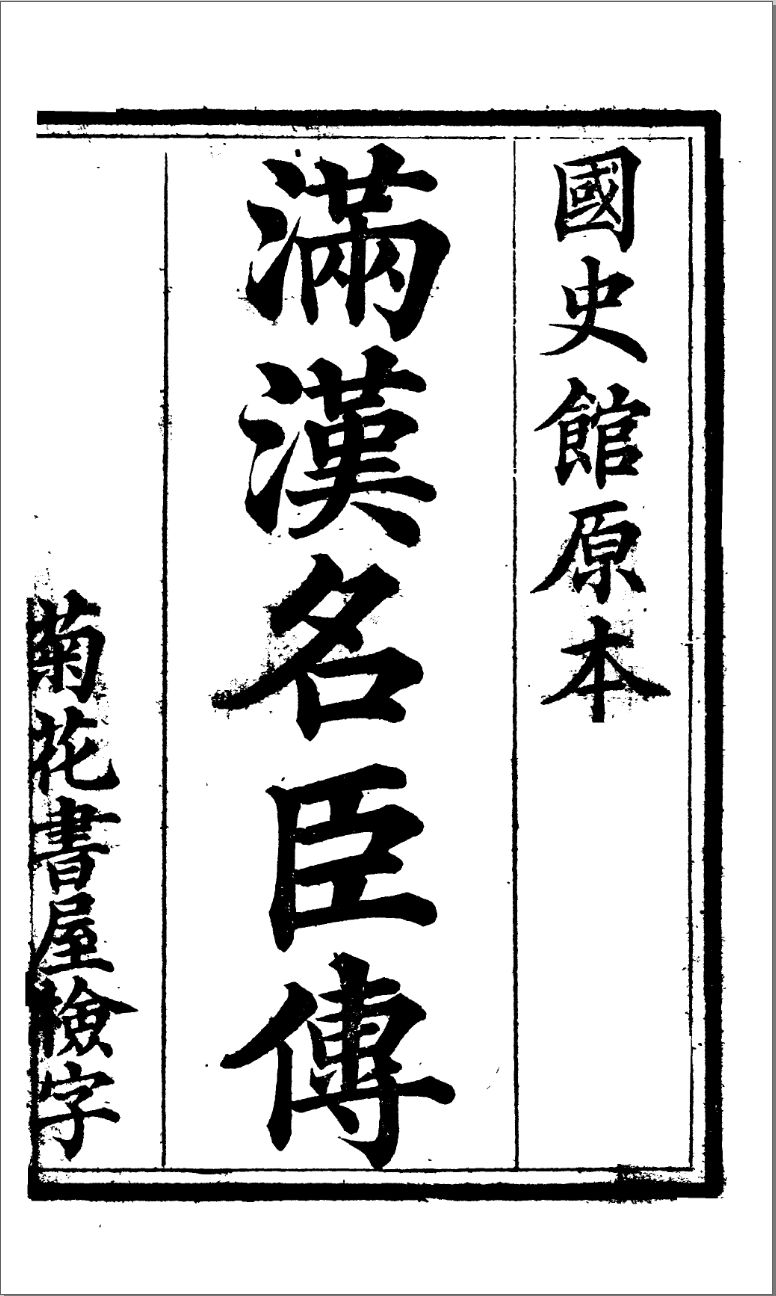 國史館原本
滿漢名臣傳
菊花書屋檢字